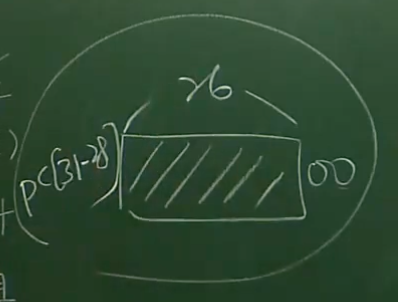 26
PC[31-28]
00